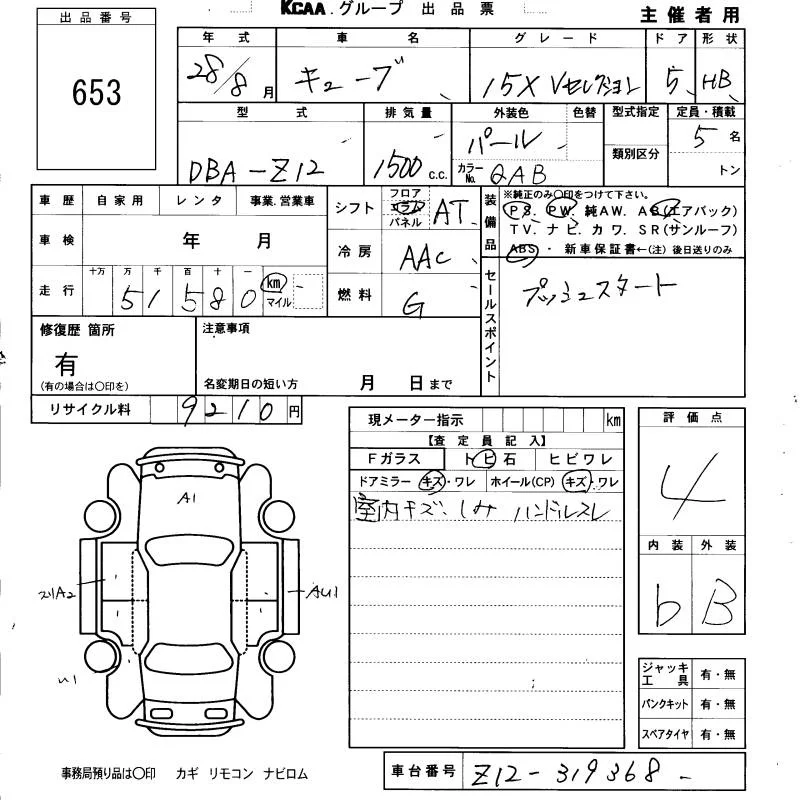 出品番号
653
KCAA.グループ 出品票
主催者用
年式 車名 グレード ドア 形状
28/8月 キューブ 15X Vセレクション 5 HB
型式 排気量 外装色 色替 型式指定 定員・積載
DBA-Z12 1500 C.C. パール 5名
類別区分
カラーNo. QAB トン
車歴 自家用 レンタ 事業.営業車
シフト フロア コラム パネル AT
装備品 ※純正のみ○印をつけて下さい。
PS. PW. 純AW. AB(エアバック)
TV. ナビ. カワ. SR(サンルーフ)
ABS・新車保証書←(注)後日送りのみ
車検 年 月
冷房 AAC
走行 十万 万 千 百 十 一
51580 km マイル
燃料 G
セールスポイント プッシュスタート
修復歴 箇所
有
(有の場合は○印を)
注意事項
名変期日の短い方 月 日まで
リサイクル料 9210円
現メーター指示 km
【査定員記入】
Fガラス トビ石 ヒビワレ
ドアミラー キズ・ワレ ホイール(CP) キズ・ワレ
室内キズ、しみ ハンドルスレ
評価点
4
内装 外装
b B
A1
A2
AU1
U1
ジャッキ工具 有・無
パンクキット 有・無
スペアタイヤ 有・無
事務局預り品は○印 カギ リモコン ナビロム
車台番号 Z12-319368